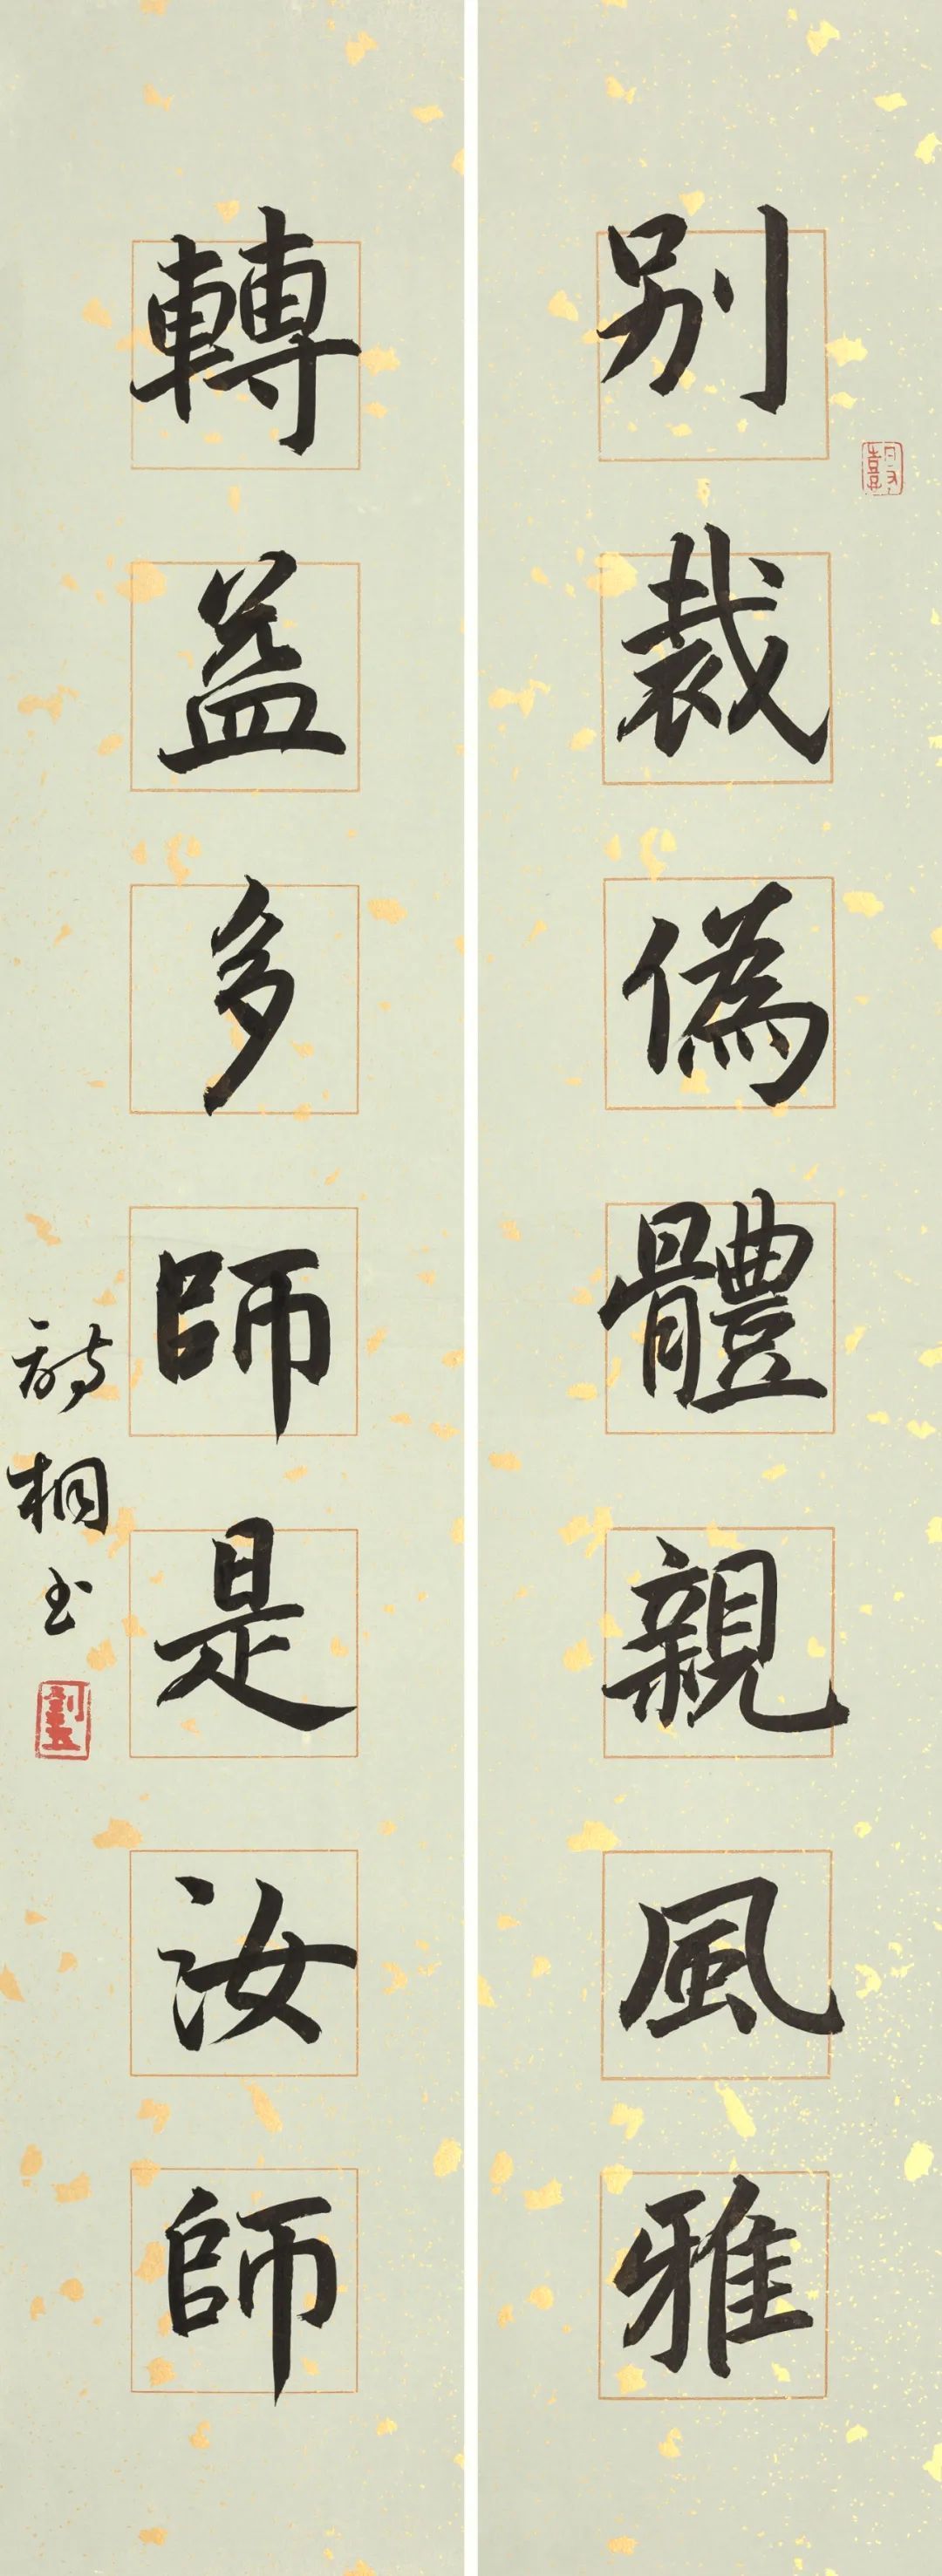 別裁偽體親風雅
轉益多師是汝師
詩桐書